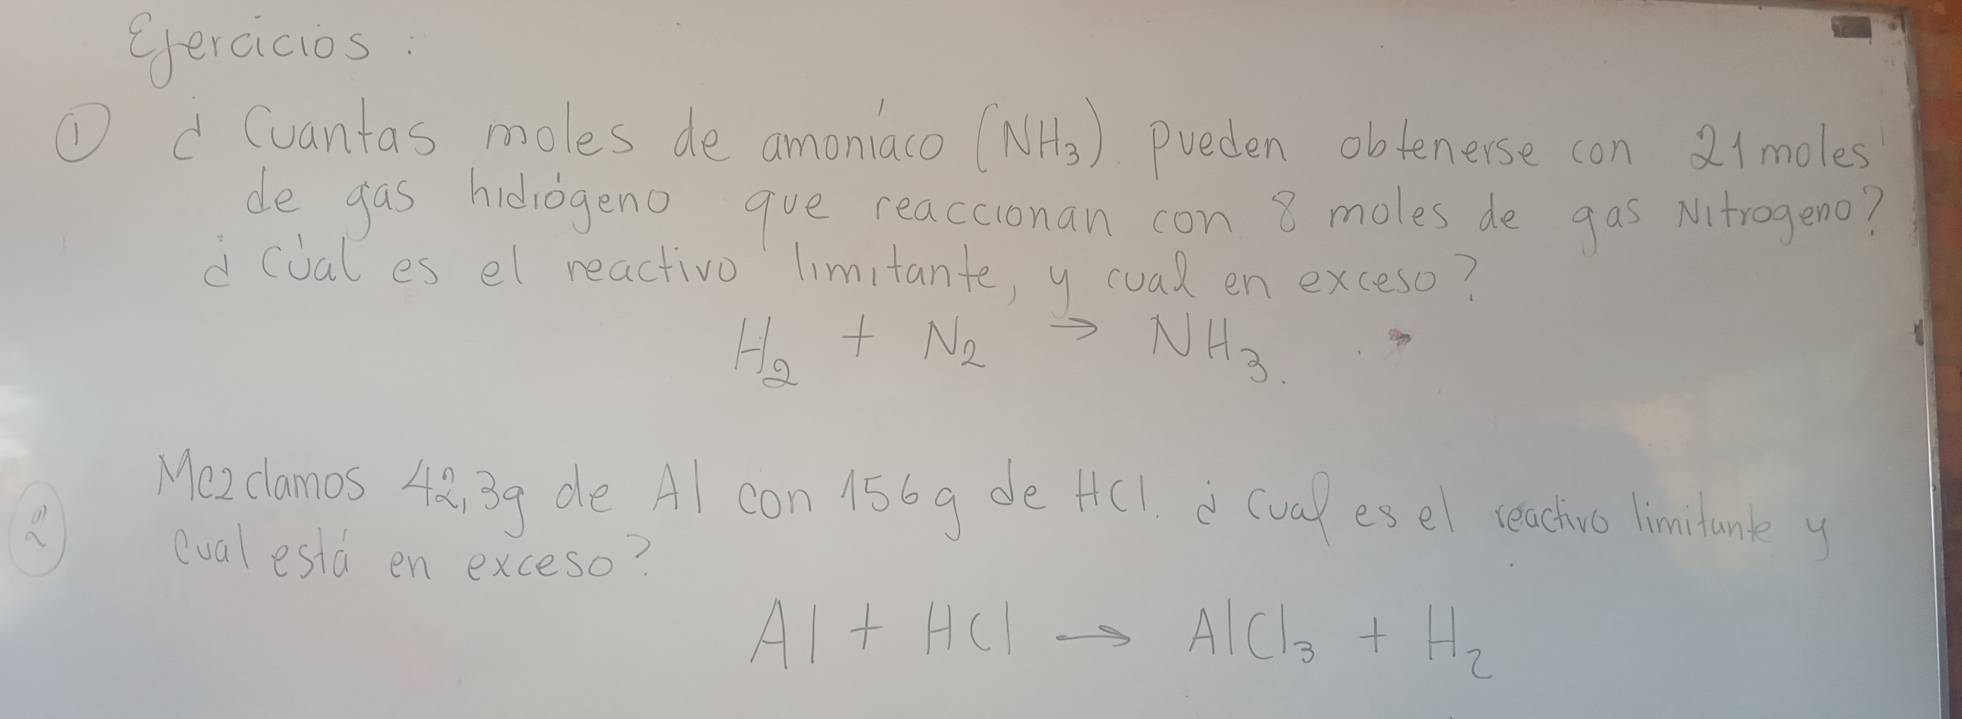 Ejercicios :
① ¿ Cuantas moles de amoníaco (NH₃) pueden obtenerse con 21 moles
de gas hidrógeno que reaccionan con 8 moles de gas Nitrogeno?
¿ Cúal es el reactivo limitante, y cual en exceso?
H₂ + N₂ → NH₃.
② Mezclamos 42,3g de Al con 156g de HCl. ¿ Cual es el reactivo limitante y
cual está en exceso?
Al + HCl → AlCl₃ + H₂